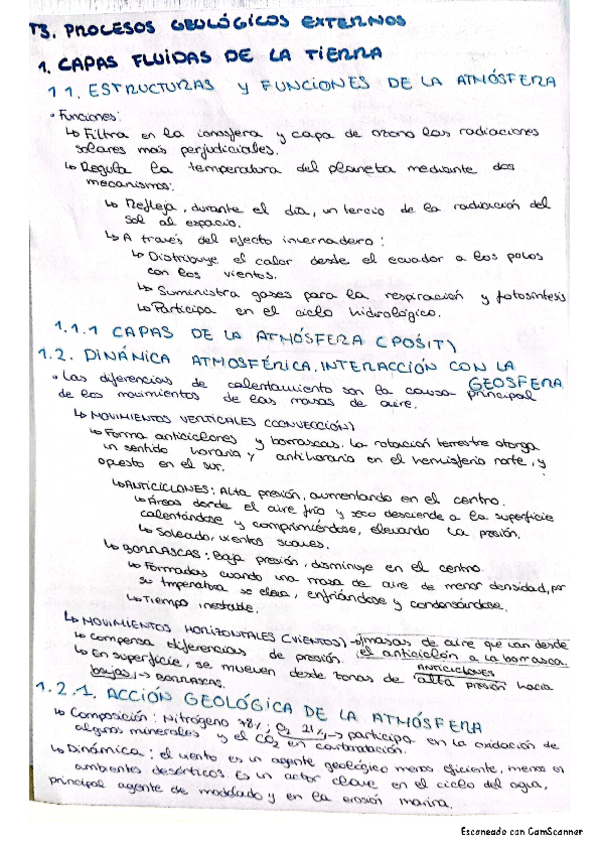 T3. PROCESOS GEOLÓGICOS EXTERNOS
1. CAPAS FLUIDAS DE LA TIERRA
1 1. ESTRUCTURAS Y FUNCIONES DE LA ATMÓSFERA
• Funciones:
↳ Filtra en la ionosfera y capa de ozono las radiaciones
solares más perjudiciales.
↳ Regula la temperatura del planeta mediante dos
mecanismos:
↳ Refleja, durante el día, un tercio de la radiación del
sol al espacio.
↳ A través del efecto invernadero:
↳ Distribuye el calor desde el ecuador a los polos
con los vientos.
↳ Suministra gases para la respiración y fotosíntesis
↳ Participa en el ciclo hidrológico.
1.1.1 CAPAS DE LA ATMÓSFERA (POSIT)
1.2. DINÁMICA ATMOSFÉRICA. INTERACCIÓN CON LA
GEOSFERA
• Las diferencias de calentamiento son la causa principal
de los movimientos de las masas de aire.
↳ MOVIMIENTOS VERTICALES (CONVECCIÓN)
↳ Forma anticiclones y borrascas. La rotación terrestre otorga
un sentido horario y antihorario en el hemisferio norte, y
opuesto en el sur.
↳ ANTICICLONES: Alta presión, aumentando en el centro.
↳ Áreas donde el aire frío y seco desciende a la superficie
calentándose y comprimiéndose, elevando la presión.
↳ Soleado, vientos suaves.
↳ BORRASCAS: Baja presión, disminuye en el centro.
↳ Formadas cuando una masa de aire de menor densidad, por
su Tmperatura se eleva, enfriándose y condensándose.
↳ Tiempo inestable.
↳ MOVIMIENTOS HORIZONTALES (VIENTOS) → masas de aire que van desde
el anticiclón a la borrasca.
↳ Compensa diferencias de presión.
↳ En superficie, se mueven desde zonas de alta presión hacia
ANTICICLONES
bajas. → BORRASCAS.
1.2.1. ACCIÓN GEOLÓGICA DE LA ATMÓSFERA
↳ Composición: Nitrógeno 78%; O2 21% → participa en la oxidación de
algunos minerales y el CO2 en carbonatación.
↳ Dinámica: el viento es un agente geológico menos eficiente, menos en
ambientes desérticos. Es un actor clave en el ciclo del agua,
principal agente de modelado y en la erosión marina.
Escaneado con CamScanner